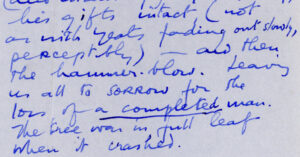 his gifts intact (not
as with Yeats fading out slowly,
perceptibly) — and then
the hammer-blow. Leaving
us all to sorrow for the
loss of a completed man.
The tree was in full leaf
when it crashed.